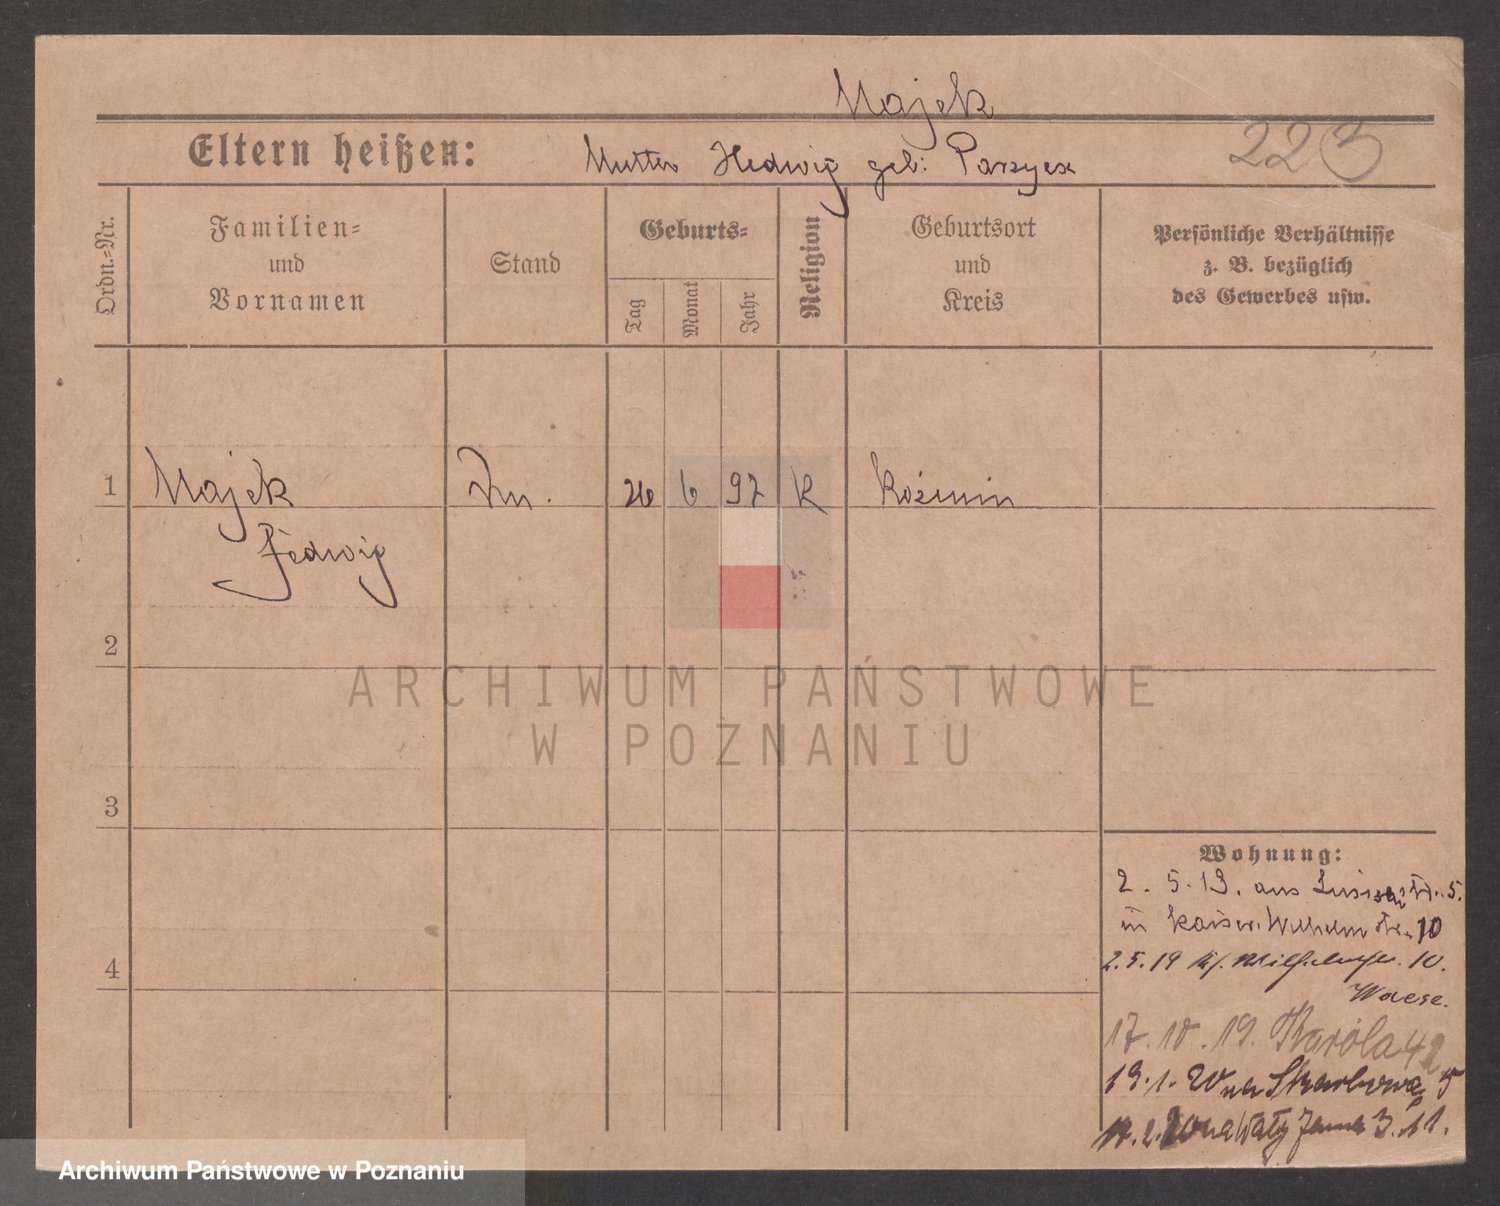 Majek
Eltern heißen: Mutter Hedwig geb: Parzyex
223
Ordn.=Nr.
Familien=
und
Vornamen
Stand
Geburts=
Tag
Monat
Jahr
Religion
Geburtsort
und
Kreis
Persönliche Verhältnisse
z. B. bezüglich
des Gewerbes usw.
1 Majek 26 6 97 K Koźmin
Hedwig
2
ARCHIWUM PAŃSTWOWE
W POZNANIU
3
4
Wohnung:
2. 5. 19. aus Luisenstr. 5.
in Kaiser. Wilhelmstr. 10
2.5.19 10.
17. 10. 19. Karola 42
19. 1. 20 na Skarbowa 5
2. 20 na Wały Jana 3. 11.
Archiwum Państwowe w Poznaniu